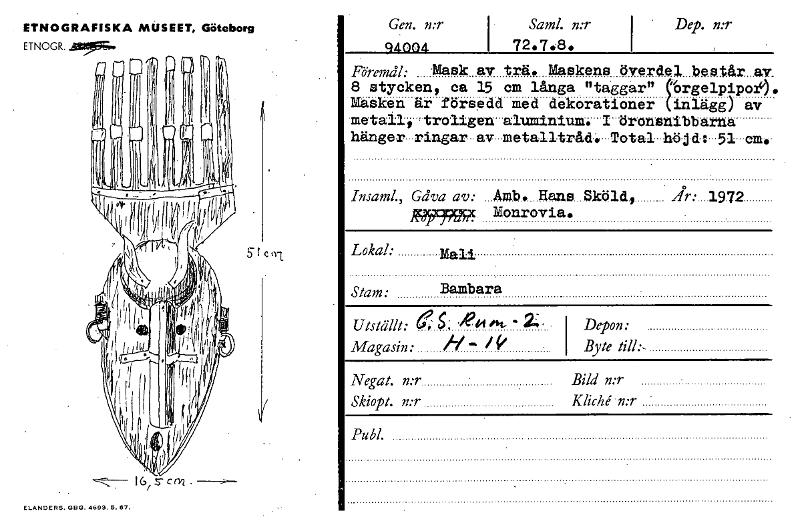 ETNOGRAFISKA MUSEET, Göteborg
ETNOGR.
51 cm
16,5 cm.
ELANDERS, GBG. 4593. 5. 67.
Gen. n:r Saml. n:r Dep. n:r
94004 72.7.8.
Föremål: Mask av trä. Maskens överdel består av
8 stycken, ca 15 cm långa "taggar" ("orgelpipor").
Masken är försedd med dekorationer (inlägg) av
metall, troligen aluminium. I öronsnibbarna
hänger ringar av metalltråd. Total höjd: 51 cm.
Insaml., Gåva av: Amb. Hans Sköld, År: 1972
Köp från: Monrovia.
Lokal: Mali
Stam: Bambara
Utställt: G.S. Rum-2. Depon:
Magasin: H-14 Byte till:
Negat. n:r Bild n:r
Skiopt. n:r Kliché n:r
Publ.